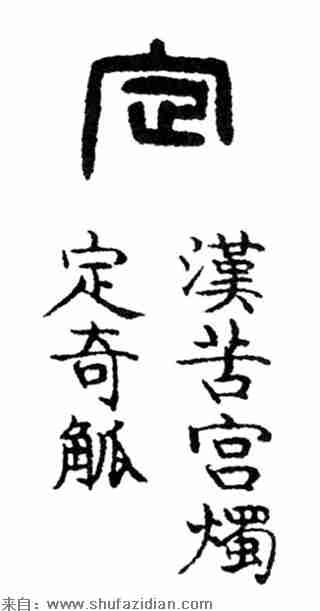 定
漢苦宫燭
定奇觚
来自：www.shufazidian.com